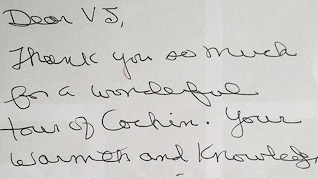 Dear VJ,
Thank you so much
for a wonderful
tour of Cochin. Your
warmth and knowledg